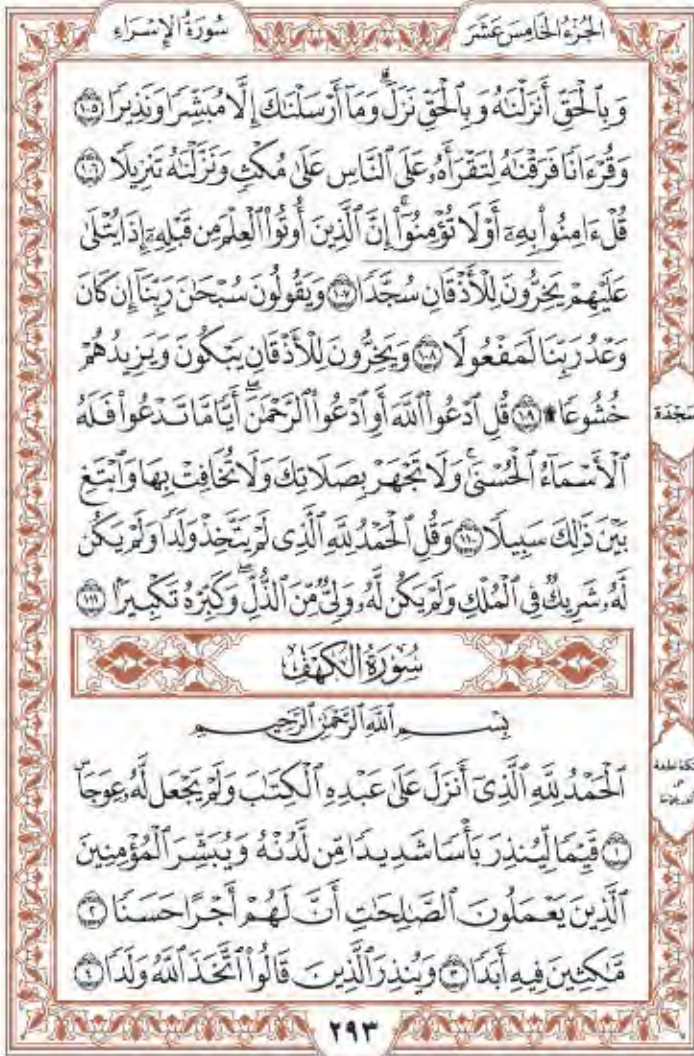 الجُزْءُ الخَامِسَ عَشَرَ
سُورَةُ الإِسْرَاءِ
وَبِٱلْحَقِّ أَنزَلْنَٰهُ وَبِٱلْحَقِّ نَزَلَۗ وَمَآ أَرْسَلْنَٰكَ إِلَّا مُبَشِّرًا وَنَذِيرًا ١٠٥
وَقُرْءَانًا فَرَقْنَٰهُ لِتَقْرَأَهُۥ عَلَى ٱلنَّاسِ عَلَىٰ مُكْثٍ وَنَزَّلْنَٰهُ تَنزِيلًا ١٠٦
قُلْ ءَامِنُوا۟ بِهِۦٓ أَوْ لَا تُؤْمِنُوٓا۟ۚ إِنَّ ٱلَّذِينَ أُوتُوا۟ ٱلْعِلْمَ مِن قَبْلِهِۦٓ إِذَا يُتْلَىٰ
عَلَيْهِمْ يَخِرُّونَ لِلْأَذْقَانِ سُجَّدًا ١٠٧ وَيَقُولُونَ سُبْحَٰنَ رَبِّنَآ إِن كَانَ
وَعْدُ رَبِّنَا لَمَفْعُولًا ١٠٨ وَيَخِرُّونَ لِلْأَذْقَانِ يَبْكُونَ وَيَزِيدُهُمْ
خُشُوعًا ۩ ١٠٩ قُلِ ٱدْعُوا۟ ٱللَّهَ أَوِ ٱدْعُوا۟ ٱلرَّحْمَٰنَۖ أَيًّا مَّا تَدْعُوا۟ فَلَهُ
سَجْدَة
ٱلْأَسْمَآءُ ٱلْحُسْنَىٰۚ وَلَا تَجْهَرْ بِصَلَاتِكَ وَلَا تُخَافِتْ بِهَا وَٱبْتَغِ
بَيْنَ ذَٰلِكَ سَبِيلًا ١١٠ وَقُلِ ٱلْحَمْدُ لِلَّهِ ٱلَّذِى لَمْ يَتَّخِذْ وَلَدًا وَلَمْ يَكُن
لَّهُۥ شَرِيكٌ فِى ٱلْمُلْكِ وَلَمْ يَكُن لَّهُۥ وَلِىٌّ مِّنَ ٱلذُّلِّۖ وَكَبِّرْهُ تَكْبِيرًۢا ١١١
سُورَةُ الكَهْفِ
بِسْمِ ٱللَّهِ ٱلرَّحْمَٰنِ ٱلرَّحِيمِ
ٱلْحَمْدُ لِلَّهِ ٱلَّذِىٓ أَنزَلَ عَلَىٰ عَبْدِهِ ٱلْكِتَٰبَ وَلَمْ يَجْعَل لَّهُۥ عِوَجَاۜ
١ قَيِّمًا لِّيُنذِرَ بَأْسًا شَدِيدًا مِّن لَّدُنْهُ وَيُبَشِّرَ ٱلْمُؤْمِنِينَ
ٱلَّذِينَ يَعْمَلُونَ ٱلصَّٰلِحَٰتِ أَنَّ لَهُمْ أَجْرًا حَسَنًا ٢
مَّٰكِثِينَ فِيهِ أَبَدًا ٣ وَيُنذِرَ ٱلَّذِينَ قَالُوا۟ ٱتَّخَذَ ٱللَّهُ وَلَدًا ٤
٢٩٣